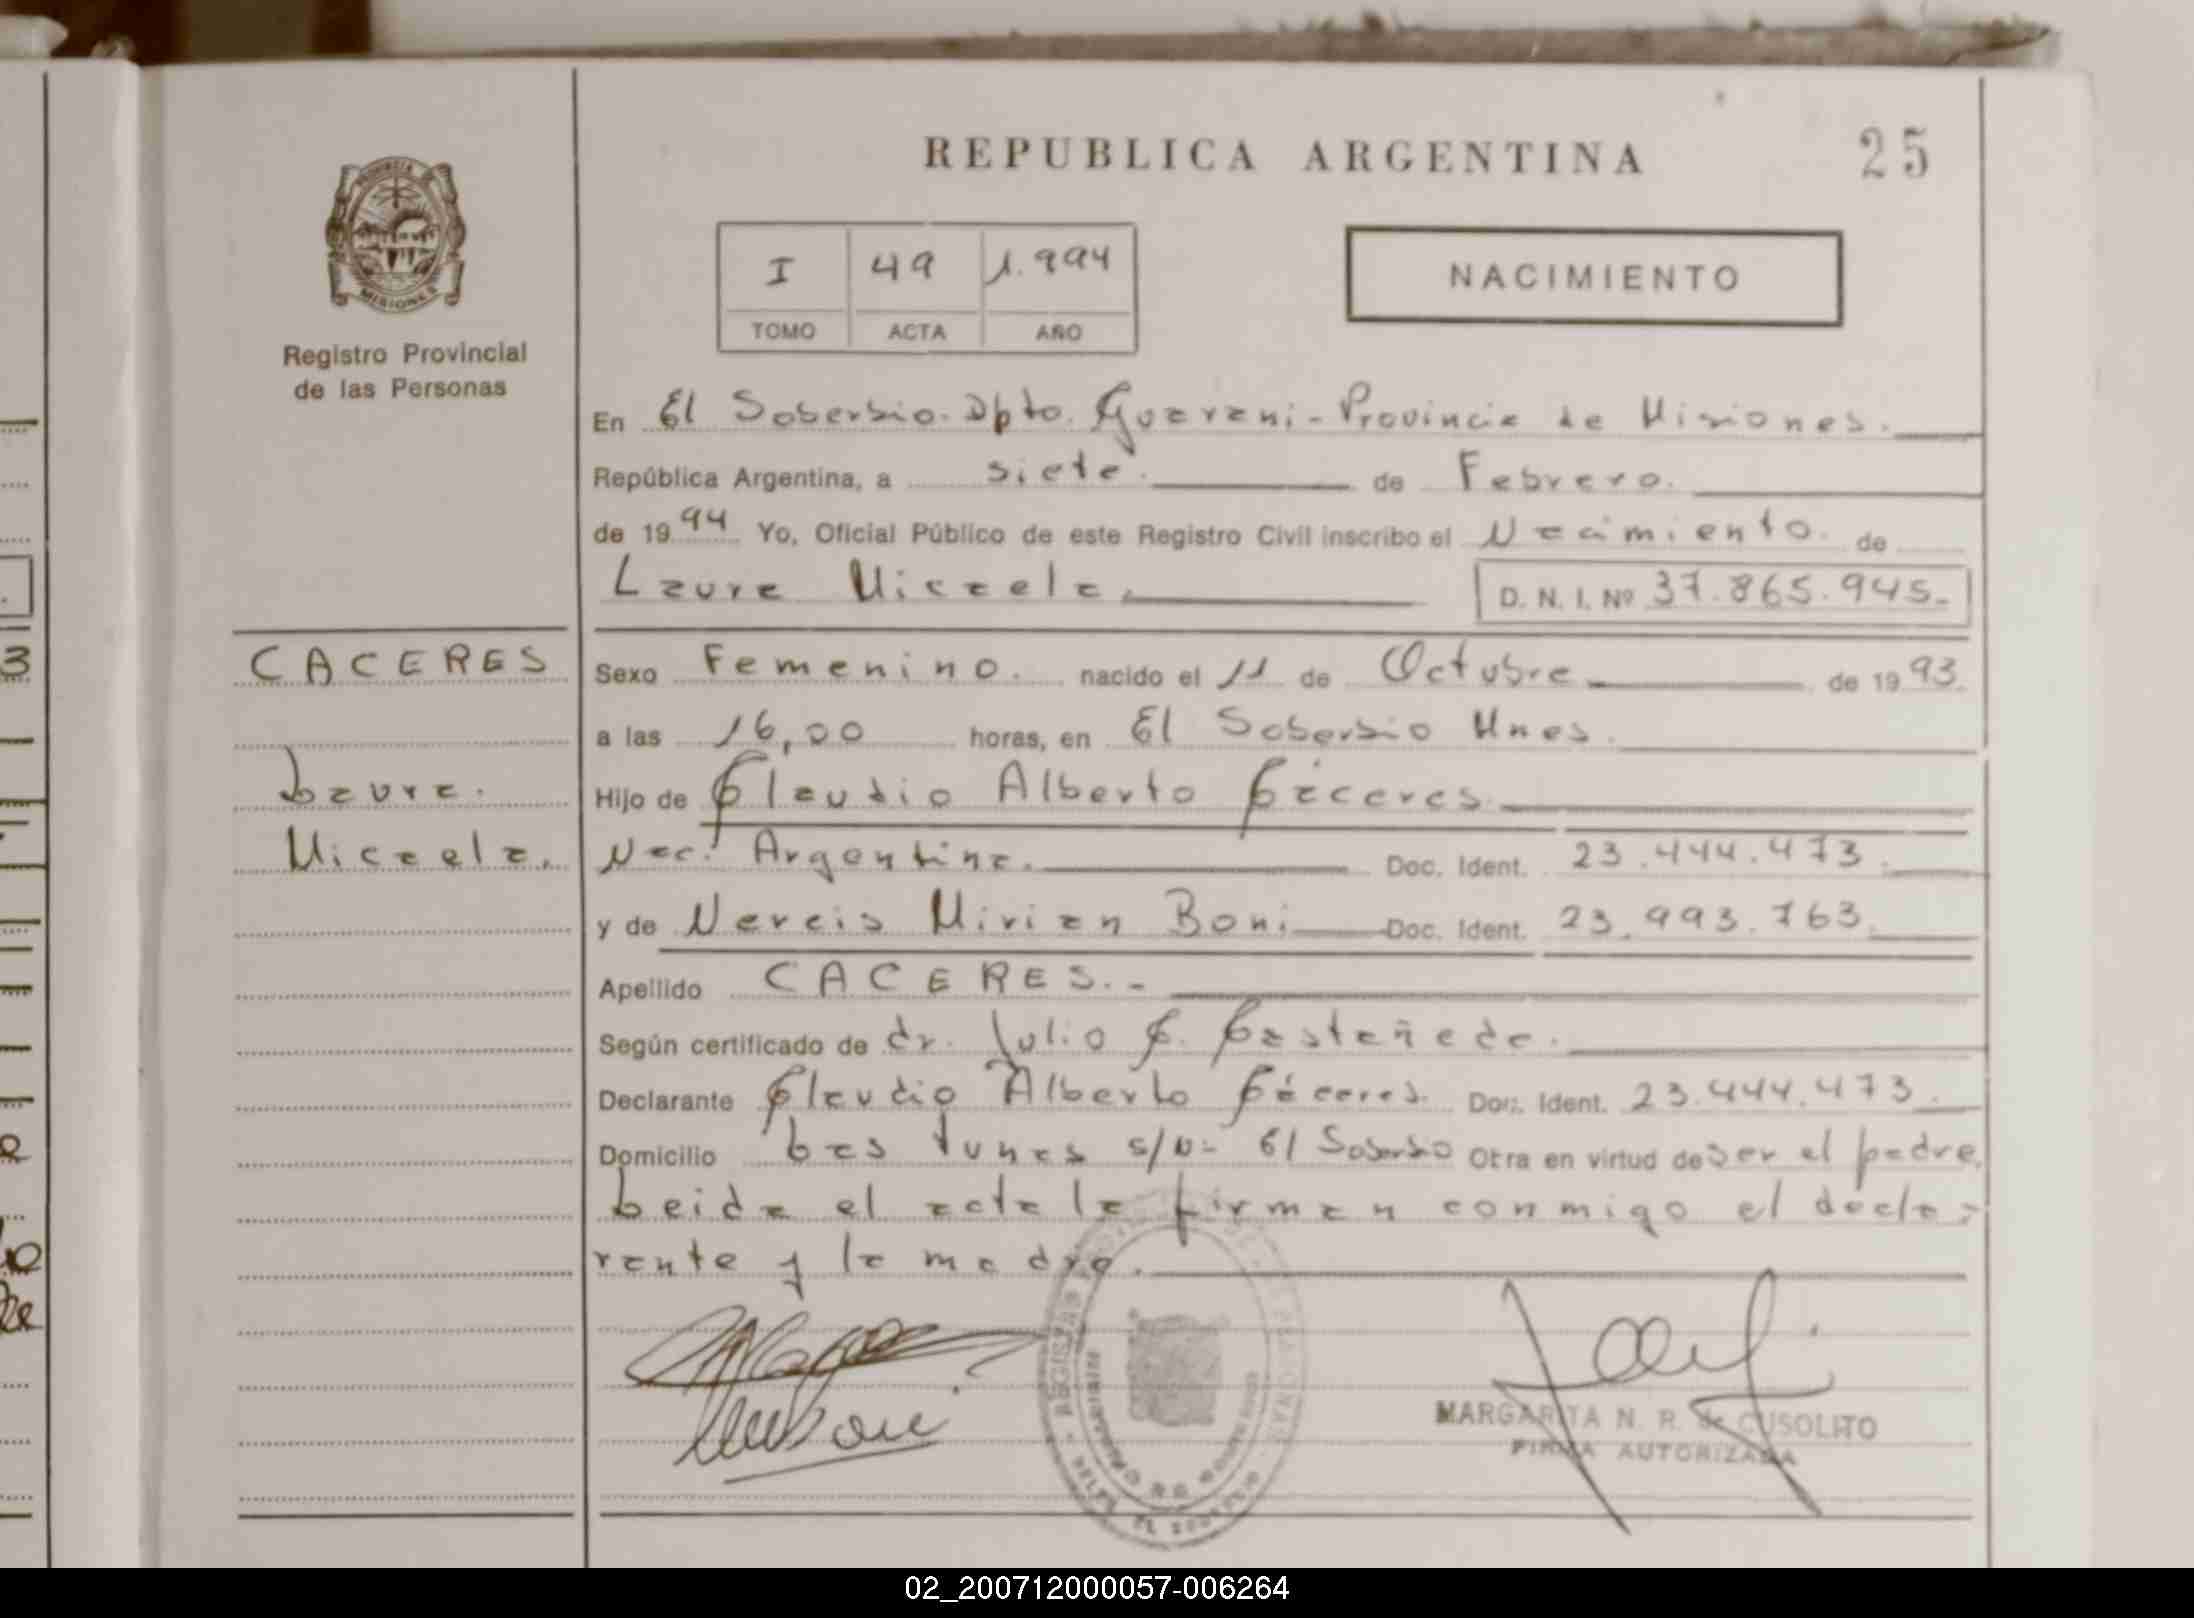 REPUBLICA ARGENTINA
25
PROVINCIA DE
MISIONES
Registro Provincial
de las Personas
I 49 1.994
TOMO ACTA AÑO
NACIMIENTO
En El Soberbio. Dpto. Guarani - Provincia de Misiones.
República Argentina, a siete. de Febrero.
de 1994 Yo, Oficial Público de este Registro Civil inscribo el Nacimiento. de
Laura Micaela.
D. N. I. Nº 37.865.945.-
CACERES
Laura.
Micaela.
Sexo Femenino. nacido el 11 de Octubre de 1993.
a las 16,00 horas, en El Soberbio Mnes.
Hijo de Claudio Alberto Cáceres.
Nac. Argentina. Doc. Ident. 23.444.473.
y de Nereis Mirian Boni Doc. Ident. 23.993.763.
Apellido CACERES.-
Según certificado de dr. Julio C. Castañeda.
Declarante Claudio Alberto Cáceres. Doc. Ident. 23.444.473.
Domicilio Las Tunas s/n- El Soberbio Otra en virtud de ser el padre.
Leida el acta la firman conmigo el decla-
rante y la madre.
MARGARITA N. R. de CUSOLITO
FIRMA AUTORIZADA
02_200712000057-006264